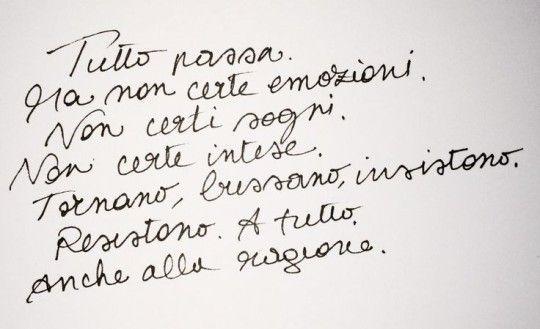 Tutto passa.
Ma non certe emozioni.
Non certi sogni.
Non certe intese.
Tornano, bussano, insistono.
Resistono. A tutto.
Anche alla ragione.